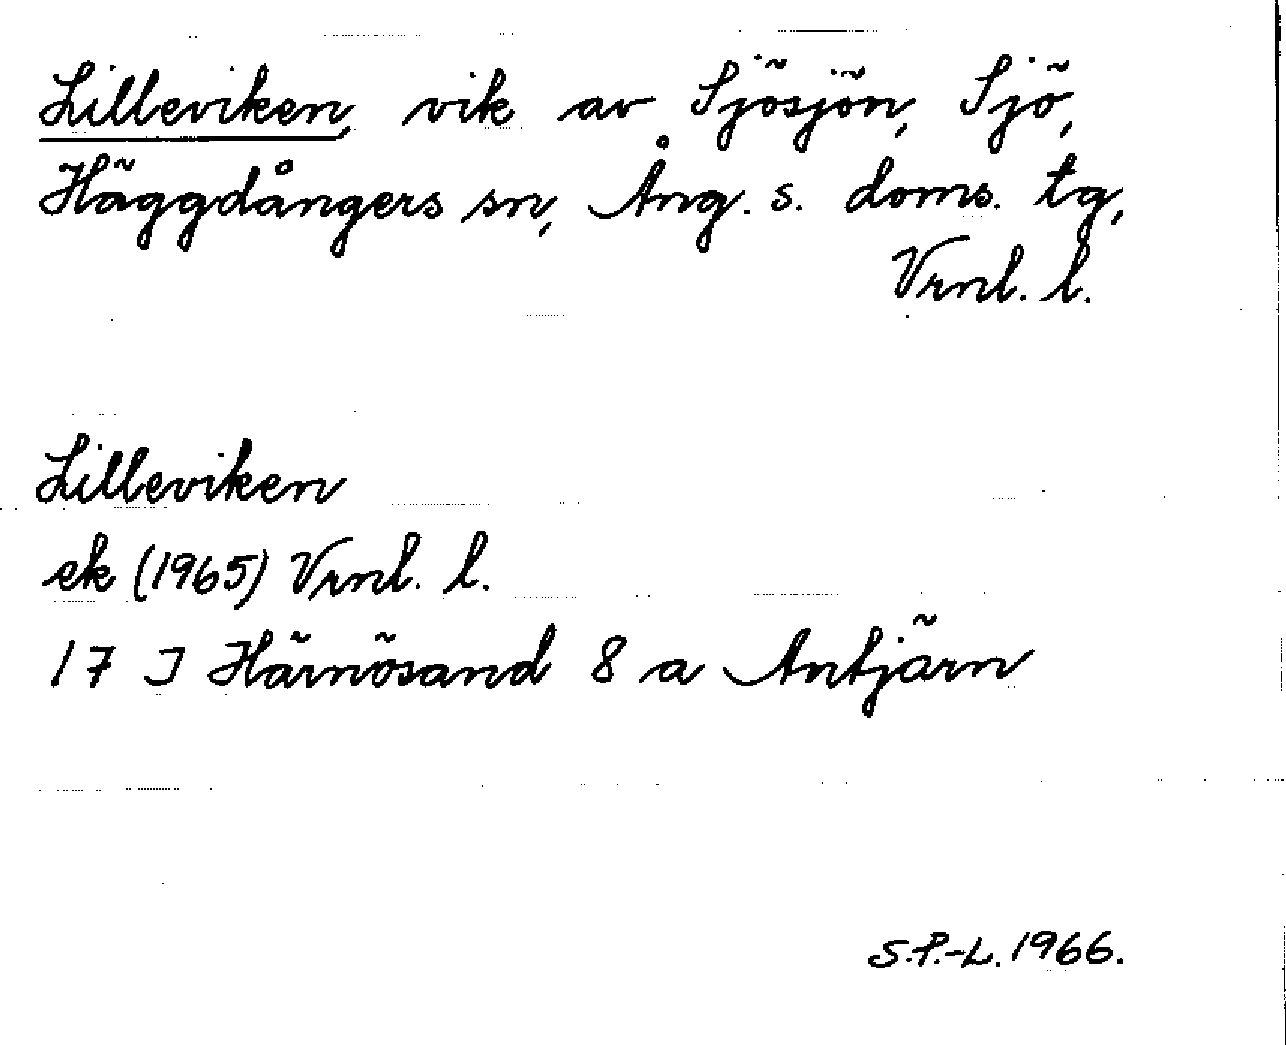 Lilleviken, vik av Sjösjön, Sjö,
Häggdångers sn, Ång. s. doms. tg,
Vrnl. l.
Lilleviken
ek (1965) Vrnl. l.
17 I Härnösand 8 a Antjärn
S.P.-L. 1966.